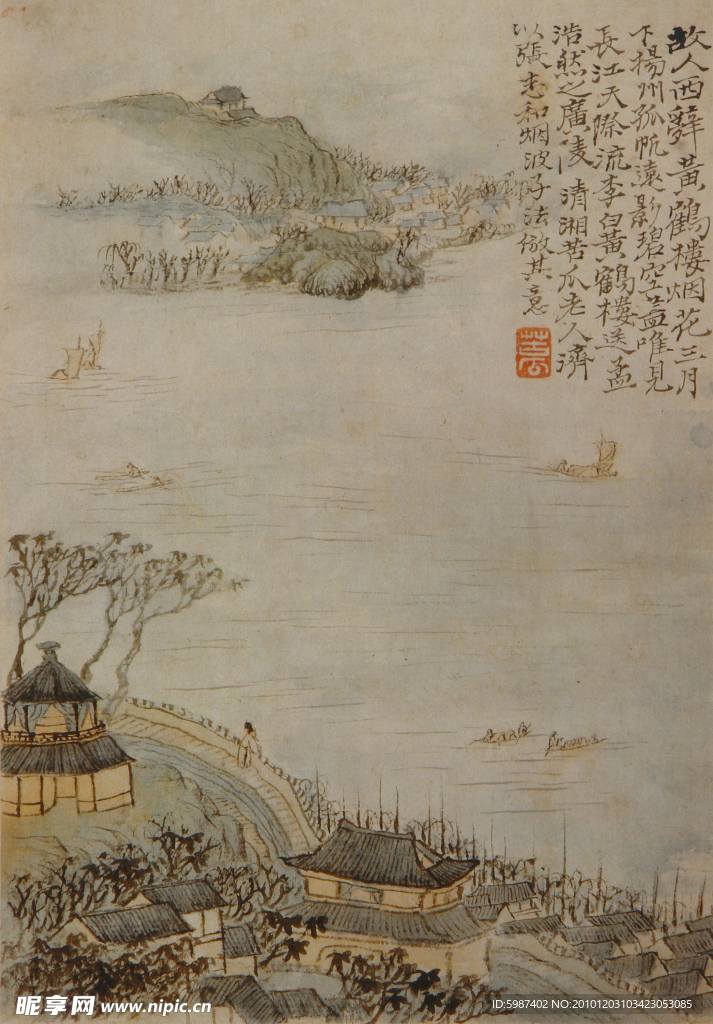 故人西辭黃鶴樓烟花三月
下揚州孤帆遠影碧空盡唯見
長江天際流李白黃鶴樓送孟
浩然之廣陵 清湘苦瓜老人濟
以張志和烟波子法倣其意
昵享网 www.nipic.cn
ID:5987402 NO:20101203103423053085